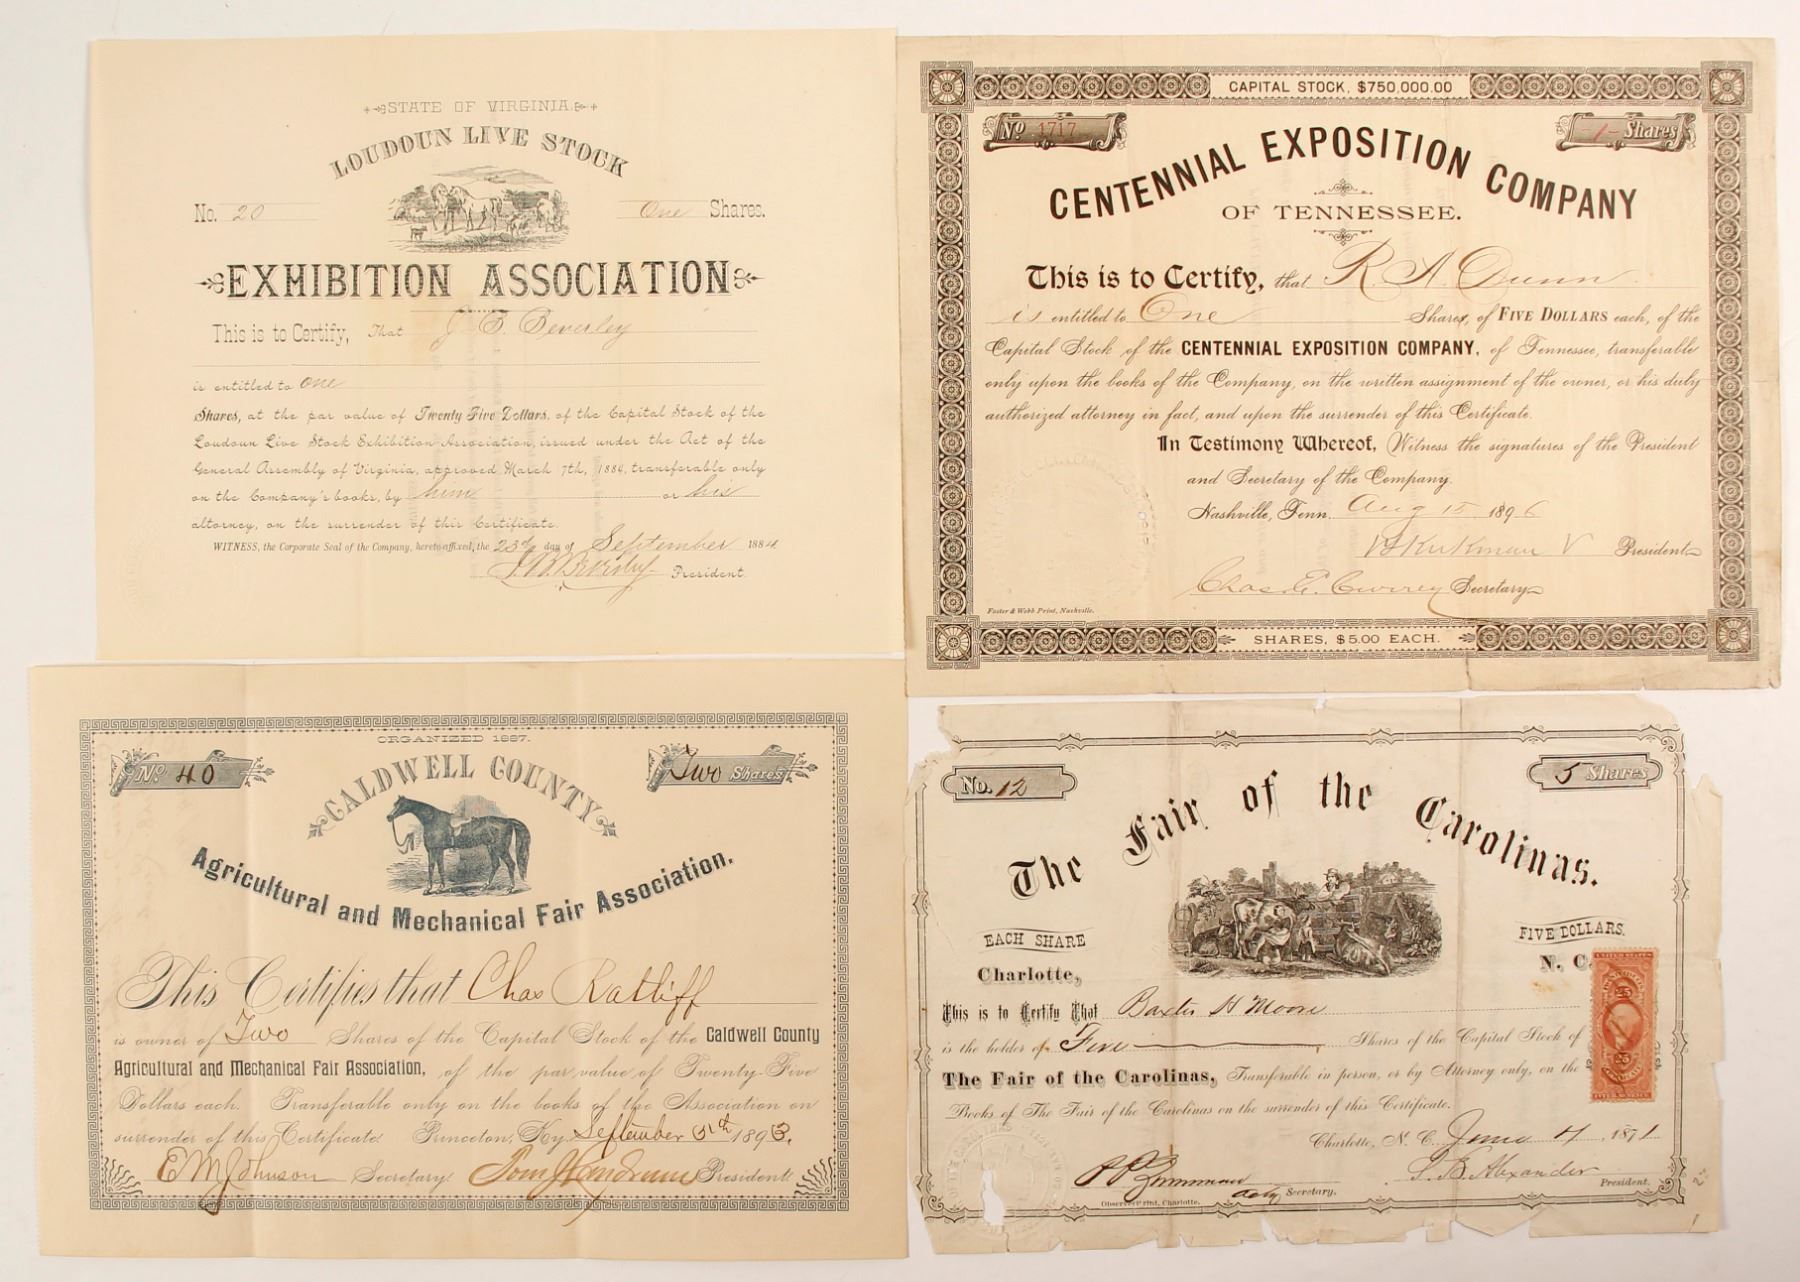 STATE OF VIRGINIA.
LOUDOUN LIVE STOCK
No. 20
One Shares.
EXHIBITION ASSOCIATION
This is to Certify, That J. B. Beverley
is entitled to One
Shares, at the par value of Twenty Five Dollars, of the Capital Stock of the
Loudoun Live Stock Exhibition Association, issued under the Act of the
General Assembly of Virginia, approved March 7th, 1884, transferable only
on the Company's books, by him or his
attorney, on the surrender of this Certificate.
WITNESS, the Corporate Seal of the Company, hereto affixed, the 23d day of September 1884.
President.
CAPITAL STOCK, $750,000.00
No 1717
-1- Shares
CENTENNIAL EXPOSITION COMPANY
OF TENNESSEE.
This is to Certify, that R. A. Dunn
is entitled to One Shares, of FIVE DOLLARS each, of the
Capital Stock of the CENTENNIAL EXPOSITION COMPANY, of Tennessee, transferable
only upon the books of the Company, on the written assignment of the owner, or his duly
authorized attorney in fact, and upon the surrender of this Certificate.
In Testimony Whereof, Witness the signatures of the President
and Secretary of the Company.
Nashville, Tenn. Aug 15 1896
Kirkman President
Chas E. Currey Secretary
Foster & Webb Print, Nashville.
SHARES, $5.00 EACH.
ORGANIZED 1887.
No 40
Two Shares
CALDWELL COUNTY
Agricultural and Mechanical Fair Association.
This Certifies that Chas Ratliff
is owner of Two Shares of the Capital Stock of the Caldwell County
Agricultural and Mechanical Fair Association, of the par value of Twenty-Five
Dollars each. Transferable only on the books of the Association on
surrender of this Certificate. Princeton, Ky. September 5th 1893.
E M Johnson Secretary. President.
No. 12
5 Shares
The Fair of the Carolinas.
EACH SHARE
FIVE DOLLARS.
Charlotte,
N. C.
This is to Certify That Baxter H Moore
is the holder of Five Shares of the Capital Stock of
The Fair of the Carolinas, Transferable in person, or by Attorney only, on the
Books of The Fair of the Carolinas on the surrender of this Certificate.
Charlotte, N. C. 1871
S. B. Alexander President.
Secretary.
Observer Print, Charlotte.
25
25